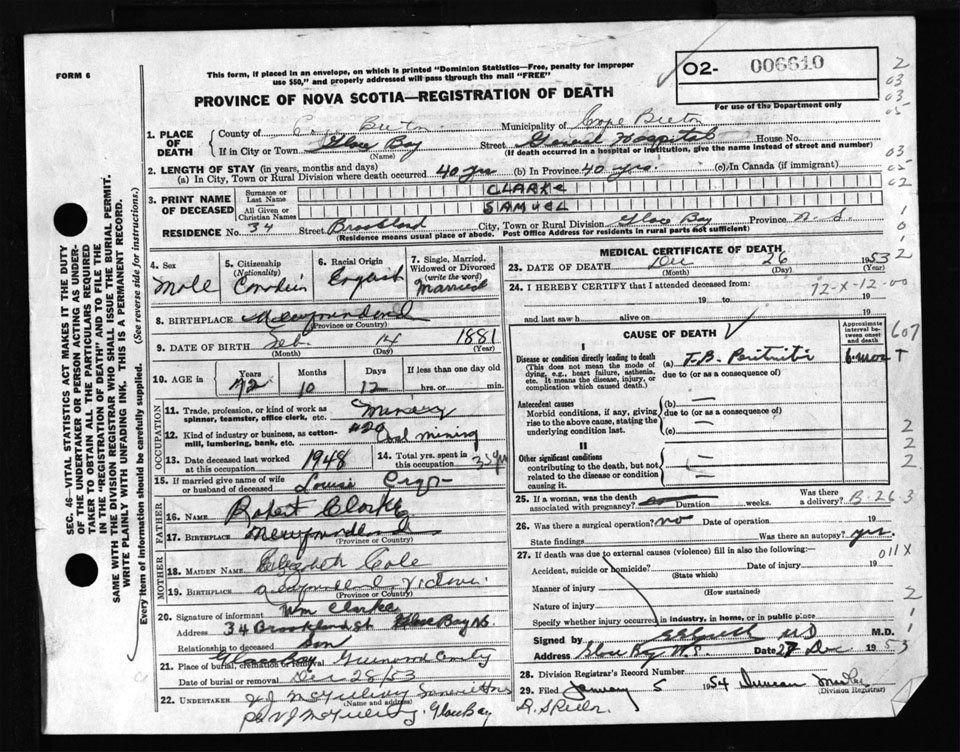 FORM 6
This form, if placed in an envelope, on which is printed "Dominion Statistics—Free, penalty for improper
use $50," and properly addressed will pass through the mail "FREE"
O2- 006610
For use of the Department only
PROVINCE OF NOVA SCOTIA—REGISTRATION OF DEATH
1. PLACE OF DEATH
County of Cape Breton Municipality of Cape Breton
If in City or Town Glace Bay (Name) Street General Hospital House No.
(If death occurred in a hospital or institution, give the name instead of street and number)
2. LENGTH OF STAY (in years, months and days)
(a) In City, Town or Rural Division where death occurred 40 yrs (b) In Province 40 yrs. (c) In Canada (if immigrant)
3. PRINT NAME OF DECEASED
Surname or Last Name CLARKE
All Given or Christian Names SAMUEL
RESIDENCE No. 34 Street City, Town or Rural Division Glace Bay Province N. S.
(Residence means usual place of abode. Post Office Address for residents in rural parts not sufficient)
4. Sex Male
5. Citizenship (Nationality) Canadian
6. Racial Origin English
7. Single, Married, Widowed or Divorced (write the word) Married
8. BIRTHPLACE Newfoundland
(Province or Country)
9. DATE OF BIRTH Feb. 14 1881
(Month) (Day) (Year)
10. AGE in Years 72 Months 10 Days 12 If less than one day old hrs. or min.
OCCUPATION
11. Trade, profession, or kind of work as spinner, teamster, office clerk, etc.
12. Kind of industry or business, as cotton-mill, lumbering, bank, etc. #20 Coal mining
13. Date deceased last worked at this occupation 1948
14. Total yrs. spent in this occupation 35 yrs
15. If married give name of wife or husband of deceased Louise
FATHER
16. NAME Robert Clarke
17. BIRTHPLACE Newfoundland
(Province or Country)
MOTHER
18. MAIDEN NAME Elizabeth Cole
19. BIRTHPLACE
(Province or Country)
20. Signature of informant Wm Clarke
Address 34 Brookland St Glace Bay NS.
Relationship to deceased Son
21. Place of burial, cremation or removal Glace Bay Greenwood
Date of burial or removal Dec 28/53
22. UNDERTAKER
(Name and address)
Glace Bay
MEDICAL CERTIFICATE OF DEATH
23. DATE OF DEATH Dec 26 1953
(Month) (Day) (Year)
24. I HEREBY CERTIFY that I attended deceased from
19 to 19
and last saw h alive on 19
72-X-12-00
CAUSE OF DEATH
Approximate interval between onset and death
I
Disease or condition directly leading to death (a) T.B. 6 mos
(This does not mean the mode of dying, e.g., heart failure, asthenia, etc. It means the disease, injury, or complication which caused death.)
due to (or as a consequence of)
Antecedent causes (b) —
Morbid conditions, if any, giving rise to the above cause, stating the underlying condition last.
due to (or as a consequence of)
(c) —
II
Other significant conditions
contributing to the death, but not related to the disease or condition causing it.
25. If a woman, was the death associated with pregnancy? Duration weeks. Was there a delivery?
B-26-3
26. Was there a surgical operation? no Date of operation 19
State findings Was there an autopsy? yes.
27. If death was due to external causes (violence) fill in also the following:
011X
Accident, suicide or homicide? Date of injury 19
(State which)
Manner of injury
(How sustained)
Nature of injury
Specify whether injury occurred in industry, in home, or in public place
Signed by MD M.D.
Address Glace Bay N.S. Date 27 Dec 1953
28. Division Registrar's Record Number
29. Filed January 5 1954 Duncan
(Division Registrar)
SEC. 46- VITAL STATISTICS ACT MAKES IT THE DUTY
OF THE UNDERTAKER OR PERSON ACTING AS UNDER-
TAKER TO OBTAIN ALL THE PARTICULARS REQUIRED
IN THE "REGISTRATION OF DEATH" AND TO FILE THE
SAME WITH THE DIVISION REGISTRAR WHO SHALL ISSUE THE BURIAL PERMIT.
WRITE PLAINLY WITH UNFADING INK. THIS IS A PERMANENT RECORD.
Every item of information should be carefully supplied. (See reverse side for instructions.)
2
03
03
05
03
05
02
1
0
1
2
607
2
2
2
2
1
3